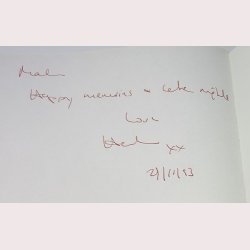 Happy memories & late nights
Love
xx
21/11/93